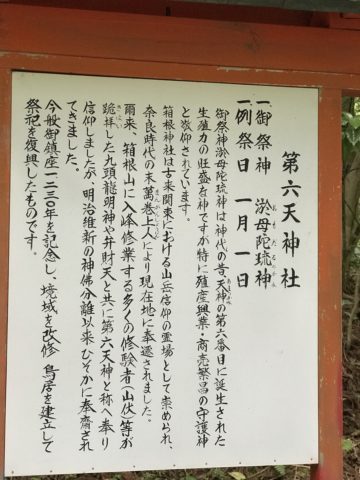 第六天神社
一、御祭神　淤母陀琉神
一、例祭日　一月一日
御祭神淤母陀琉神は神代の昔、天神の第六番目に誕生された
生殖力の旺盛な神ですが特に殖産興業・商売繁昌の守護神
と敬仰されています。
箱根神社は古来関東における山岳信仰の霊場として崇められ、
奈良時代の末萬巻上人により現在地に奉遷されました。
爾来、箱根山に入峰修業する多くの修験者（山伏）等が
跪拝した九頭龍明神や弁財天と共に第六天神と称へ奉り
信仰しましたが、明治維新の神佛分離以来ひそかに奉斎され
てきました。
今般御鎮座一二三〇年を記念し、境域を改修 鳥居を建立して
祭祀を復興したものです。